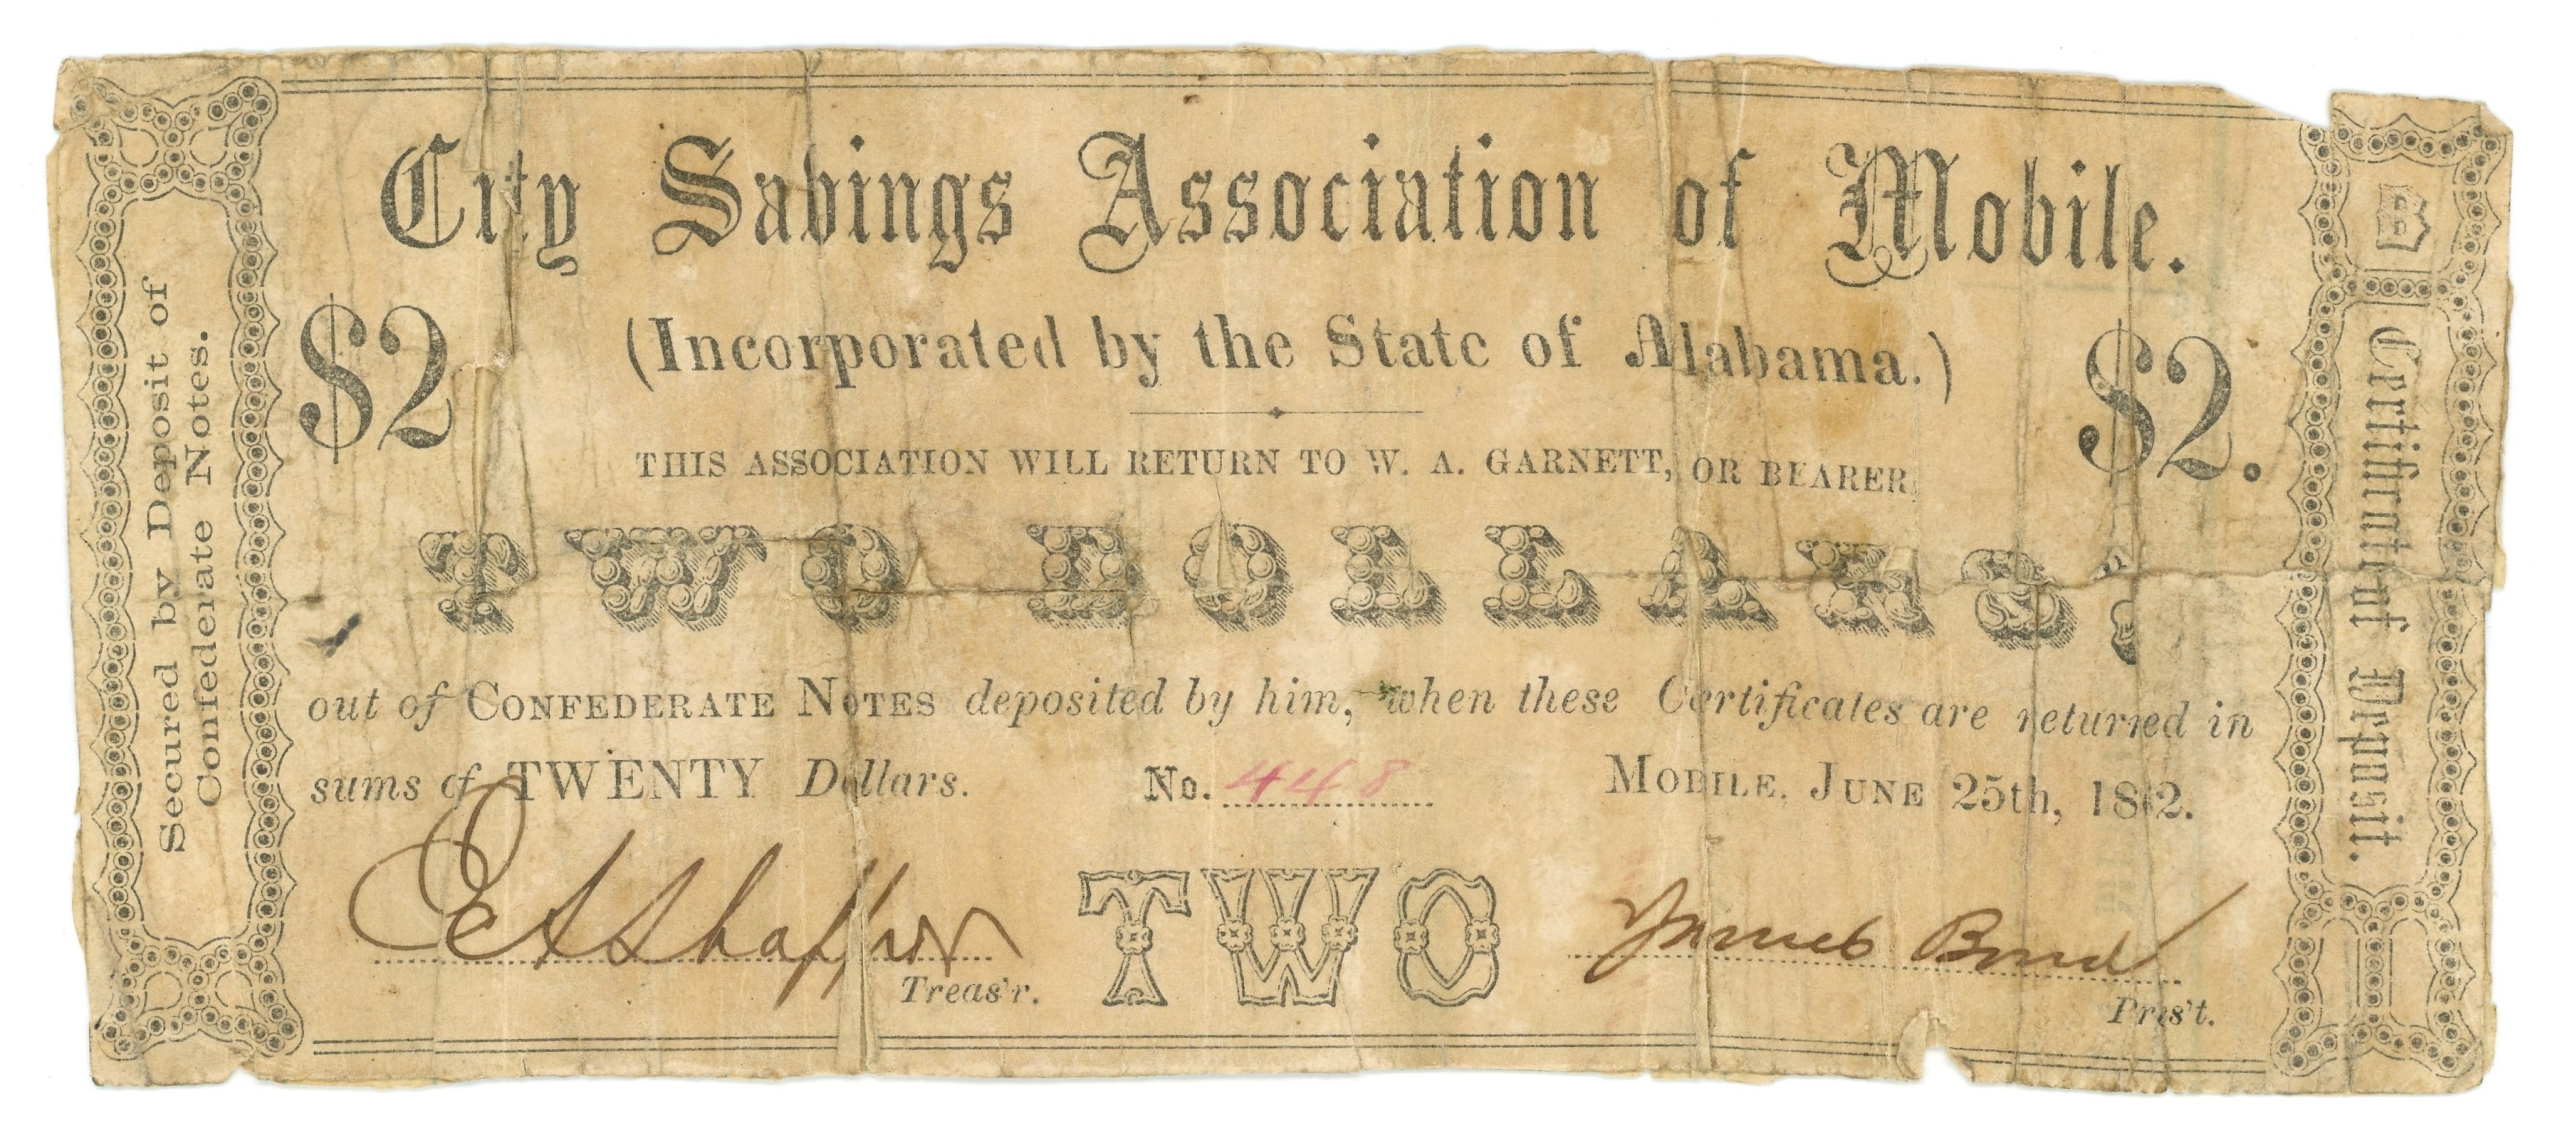 City Savings Association of Mobile.
(Incorporated by the State of Alabama.)
$2
$2.
THIS ASSOCIATION WILL RETURN TO W. A. GARNETT, OR BEARER
TWO DOLLARS,
out of CONFEDERATE NOTES deposited by him, when these Certificates are returned in
sums of TWENTY Dollars. No. 448 MOBILE, JUNE 25th, 1862.
TWO
James Bond
Treas'r.
Pres't.
Secured by Deposit of
Confederate Notes.
Certificate of Deposit.